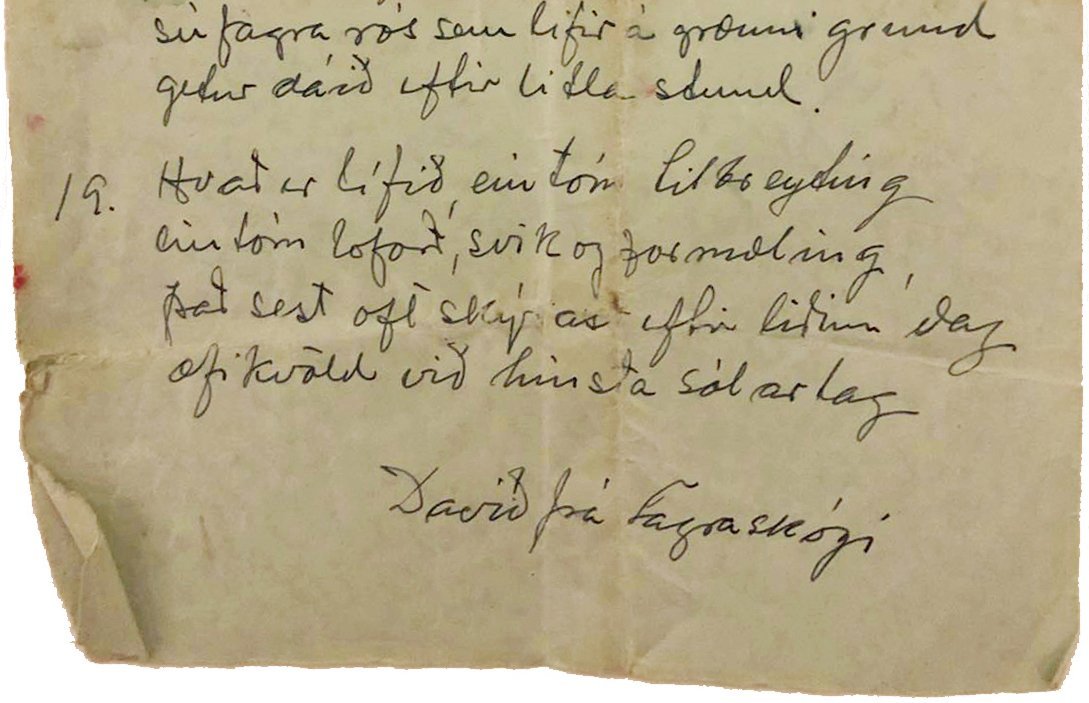 sú fagra rós sem lifir á grænni grund
getur dáið eftir litla stund.
19. Hvað er lífið, eintóm tilbreyting
eintóm loforð, svik og formæling,
það sest oft skýrast eftir liðinn dag
æfikvöld við hinsta sólarlag
Davíð frá Fagraskógi